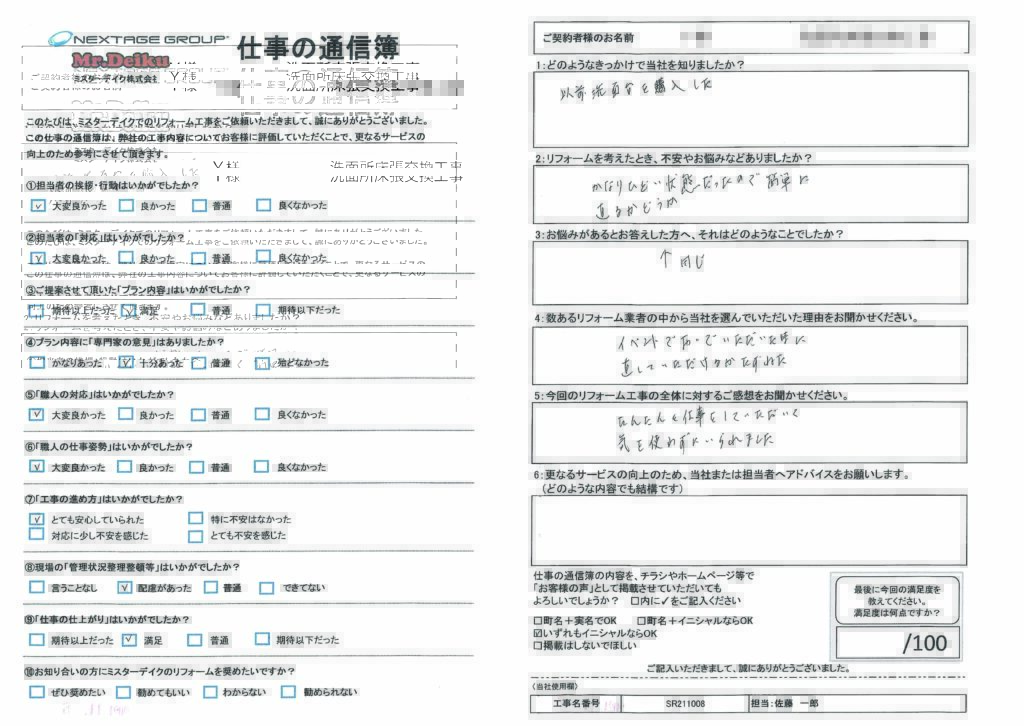 NEXTAGE GROUP
Mr.Deiku
ミスターデイク株式会社
仕事の通信簿
Y様 洗面所床張交換工事
このたびは、ミスターデイクでのリフォーム工事をご依頼いただきまして、誠にありがとうございました。
この仕事の通信簿は、弊社の工事内容についてお客様に評価していただくことで、更なるサービスの
向上のため参考にさせて頂きます。
Y様 洗面所床張交換工事
①担当者の挨拶・行動はいかがでしたか？
☑ 大変良かった □ 良かった □ 普通 □ 良くなかった
②担当者の「対応」はいかがでしたか？
☑ 大変良かった □ 良かった □ 普通 □ 良くなかった
③ご提案させて頂いた「プラン内容」はいかがでしたか？
□ 期待以上だった ☑ 満足 □ 普通 □ 期待以下だった
④プラン内容に「専門家の意見」はありましたか？
□ かなりあった ☑ 十分あった □ 普通 □ 殆どなかった
⑤「職人の対応」はいかがでしたか？
☑ 大変良かった □ 良かった □ 普通 □ 良くなかった
⑥「職人の仕事姿勢」はいかがでしたか？
☑ 大変良かった □ 良かった □ 普通 □ 良くなかった
⑦「工事の進め方」はいかがでしたか？
☑ とても安心していられた □ 特に不安はなかった
□ 対応に少し不安を感じた □ とても不安を感じた
⑧現場の「管理状況整理整頓等」はいかがでしたか？
□ 言うことなし ☑ 配慮があった □ 普通 □ できてない
⑨「仕事の仕上がり」はいかがでしたか？
□ 期待以上だった ☑ 満足 □ 普通 □ 期待以下だった
⑩お知り合いの方にミスターデイクのリフォームを奨めたいですか？
□ ぜひ奨めたい □ 勧めてもいい □ わからない □ 勧められない
ご契約者様のお名前
1：どのようなきっかけで当社を知りましたか？
以前洗面台を購入した
2：リフォームを考えたとき、不安やお悩みなどありましたか？
かなりひどい状態だったので簡単に
直るかどうか
3：お悩みがあるとお答えした方へ、それはどのようなことでしたか？
↑同じ
4：数あるリフォーム業者の中から当社を選んでいただいた理由をお聞かせください。
イベントで会っていただいた時に
直していただけるかたずねた
5：今回のリフォーム工事の全体に対するご感想をお聞かせください。
たんたんと仕事をしていただいて
気を使わずにいられました
6：更なるサービスの向上のため、当社または担当者へアドバイスをお願いします。
（どのような内容でも結構です）
仕事の通信簿の内容を、チラシやホームページ等で
「お客様の声」として掲載させていただいても
よろしいでしょうか？ □内に✓をご記入ください
□町名＋実名でOK □町名＋イニシャルならOK
☑いずれもイニシャルならOK
□掲載はしないでほしい
最後に今回の満足度を
教えてください。
満足度は何点ですか？
/100
ご記入いただきまして、誠にありがとうございました。
（当社使用欄）
工事名番号 SR211008 担当：佐藤 一郎